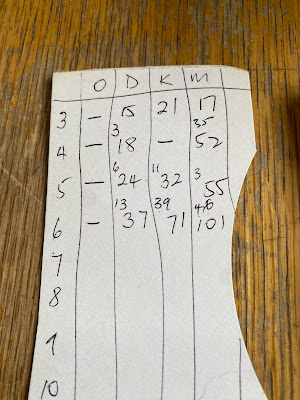 O D K M
3 — 15 21 17
3 35
4 — 18 — 52
6 11 3
5 — 24 32 55
13 39 46
6 — 37 71 101
7
8
9
10